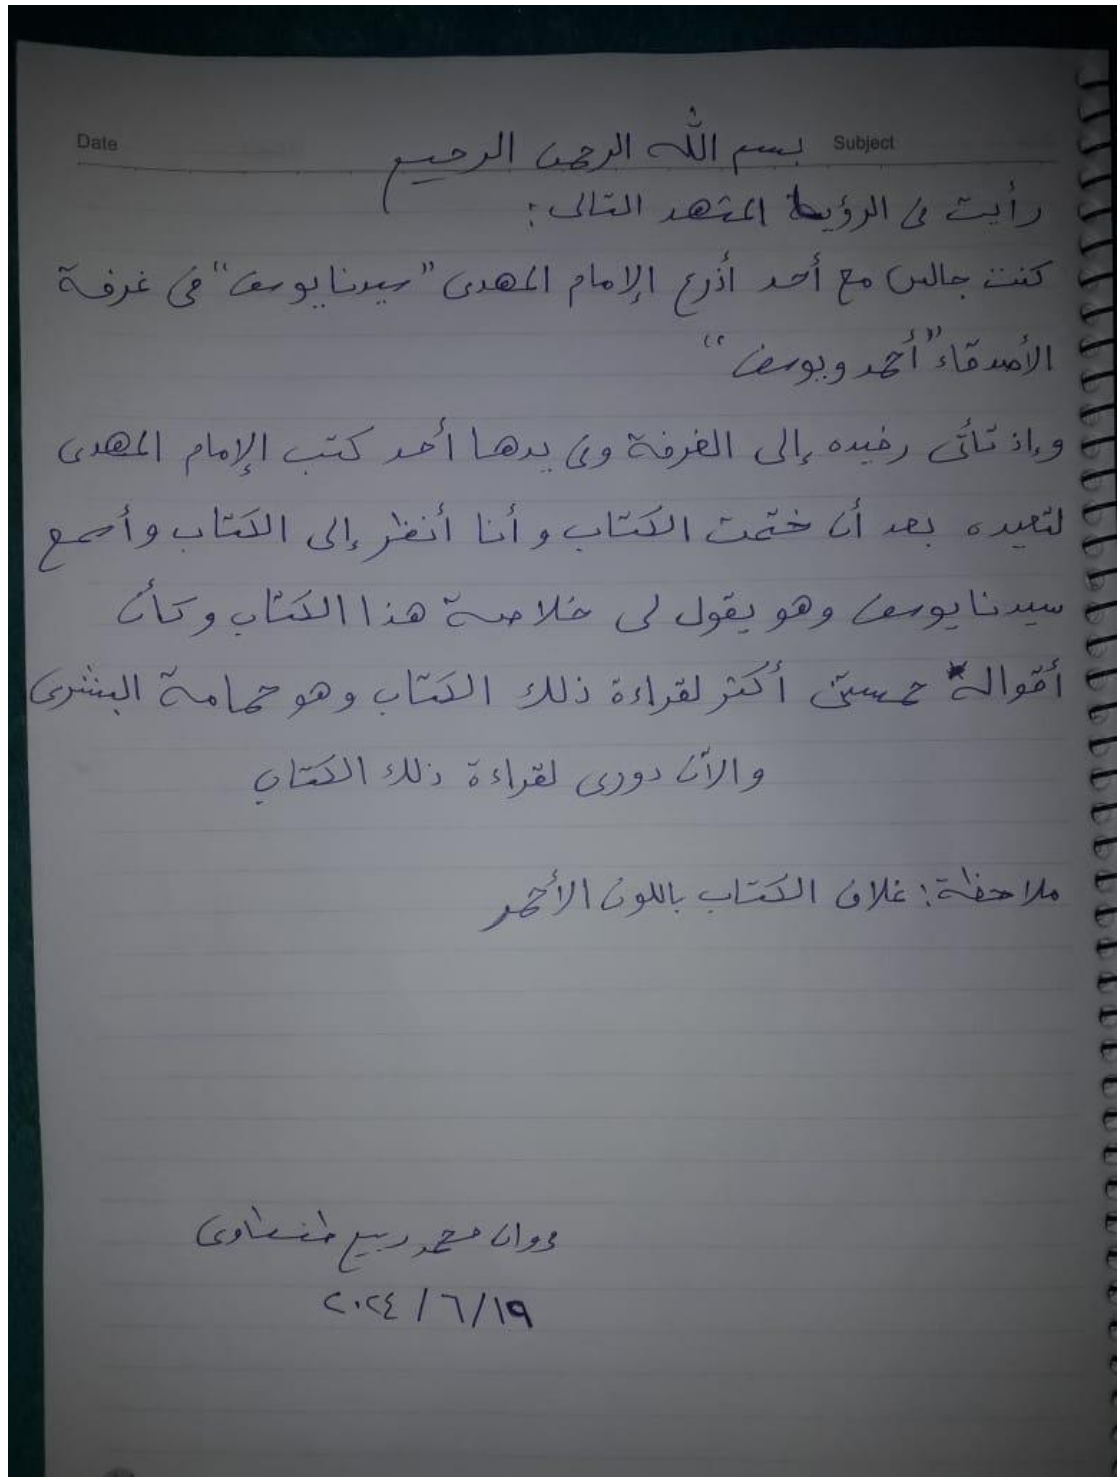 Date
Subject
بسم الله الرحمن الرحيم
رأيت فى الرؤيا المشهد التالى:
كنت جالس مع أحد أذرع الإمام المهدى "سيدنا يوسف" فى غرفة
الأصدقاء "أحمد ويوسف"
وإذ تأتى رفيده إلى الغرفة وفى يدها أحد كتب الإمام المهدى
لتعيده بعد أن ختمت الكتاب وأنا أنظر إلى الكتاب وأسمع
سيدنا يوسف وهو يقول لى خلاصة هذا الكتاب وكأن
أقواله حمستنى أكثر لقراءة ذلك الكتاب وهو حمامة البشرى
والآن دورى لقراءة ذلك الكتاب
ملاحظة: غلاف الكتاب باللون الأحمر
محمد ربيع طنطاوى
٢٠٢٤/٦/١٩